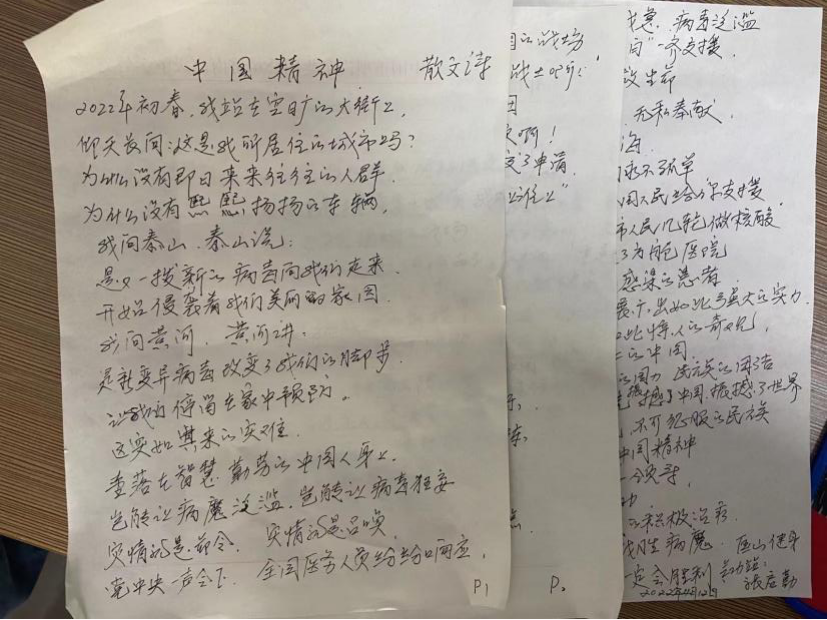 中国精神 散文诗
2022年初春，我站在空旷的大街上，
仰天发问：这是我所居住的城市吗？
为什么没有即日来来往往的人群
为什么没有熙熙扬扬的车辆，
我问泰山，泰山说：
是又一拨新的病毒向我们走来
开始侵袭着我们美丽的家园
我问黄河，黄河讲：
是新变异病毒改变了我们的脚步
让我们停留在家中预防。
这突如其来的灾难
坠落在智慧勤劳的中国人身上
岂能让病魔泛滥，岂能让病毒狂妄
灾情就是命令，灾情就是召唤
党中央一声令下，全国医务人员纷纷响应，
P1
的战场
战士
啊！
了申请
P2
病毒泛滥
一齐支援
生命
无私奉献
海
永不孤单
国人民给你支援
市人民几轮做核酸
了方舱医院
感染的患者
展示出如此强大的实力
此惊人的奇迹，
的中国
的国力 民族的团结
震撼了中国，振撼了世界
不可征服的民族
中国精神
积极治疗
战胜病魔
一定会胜利
2022年4月12日